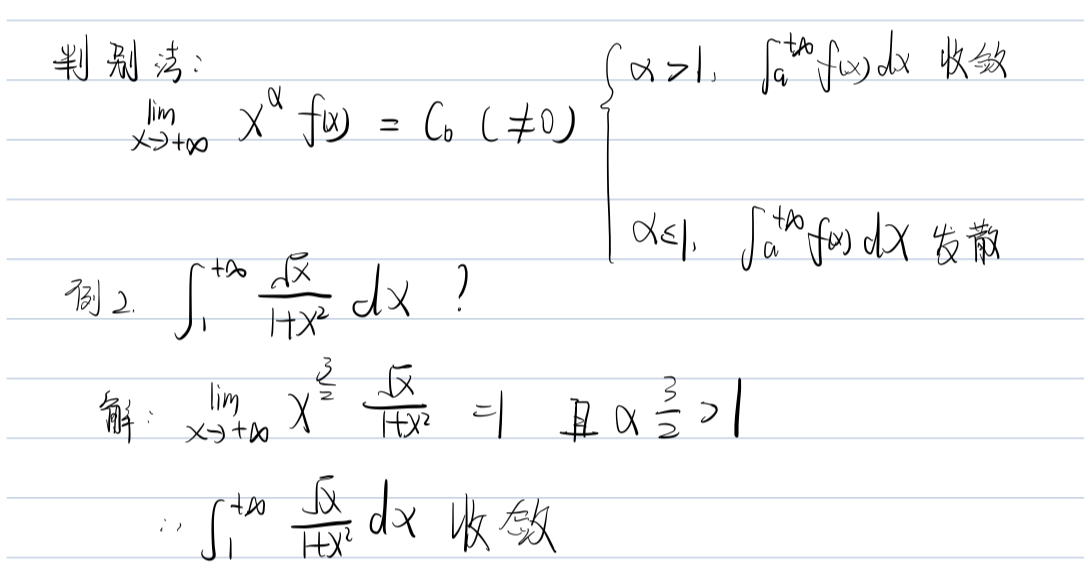 判别法:
lim x→+∞ x^α f(x) = C₀ (≠0) { α>1, ∫ₐ^{+∞} f(x)dx 收敛
α≤1, ∫ₐ^{+∞} f(x)dx 发散
例2. ∫₁^{+∞} √x/(1+x²) dx ?
解: lim x→+∞ x^{3/2} √x/(1+x²) =1 且 α 3/2 >1
∴ ∫₁^{+∞} √x/(1+x²) dx 收敛